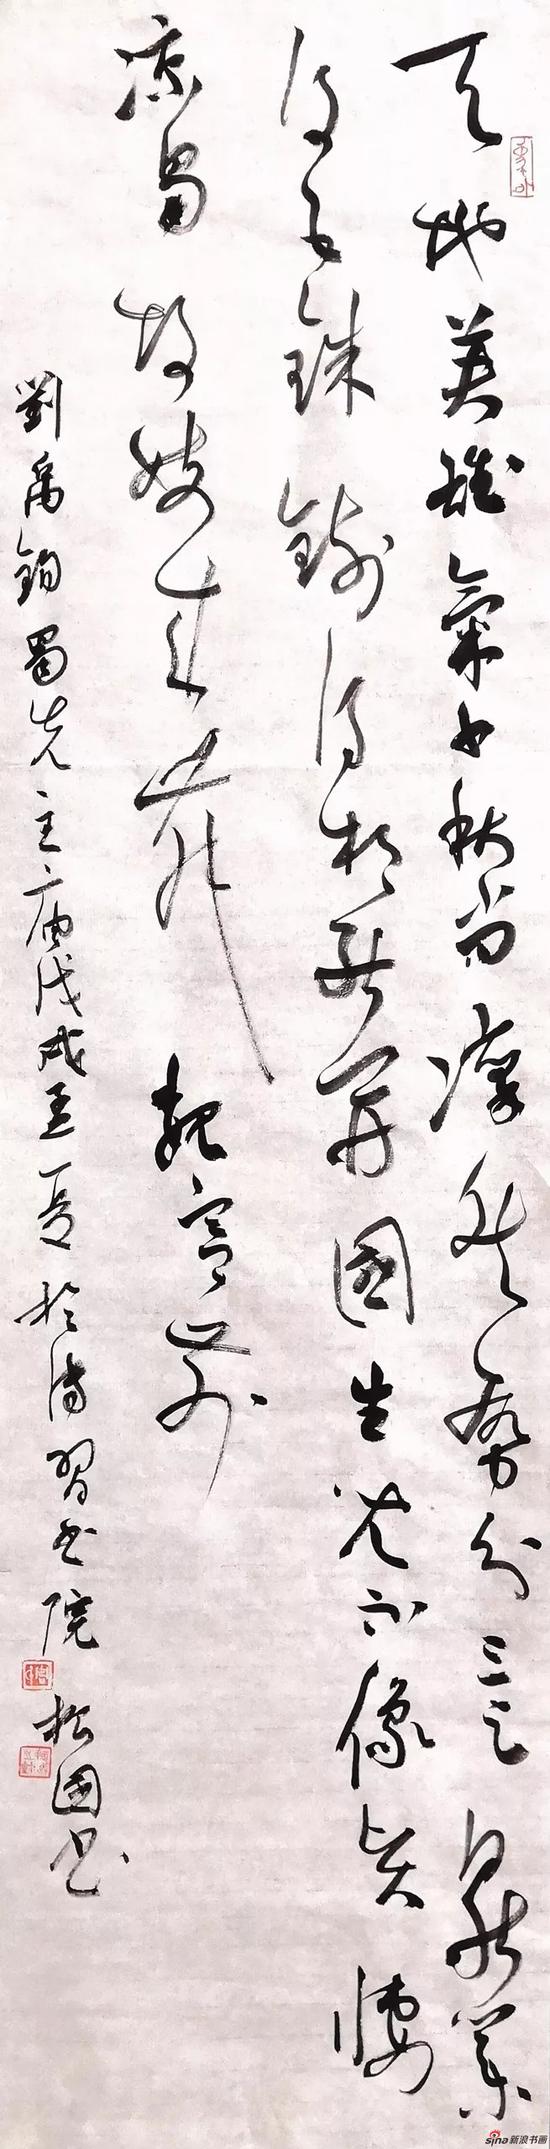 天地英雄氣千秋尚凜然勢分三足鼎業
復五銖錢得相能開國生兒不像賢悽
涼蜀故妓來舞魏宮前
劉禹錫蜀先主庙戊戌孟夏於傳習書院
松国書
sina新浪书画